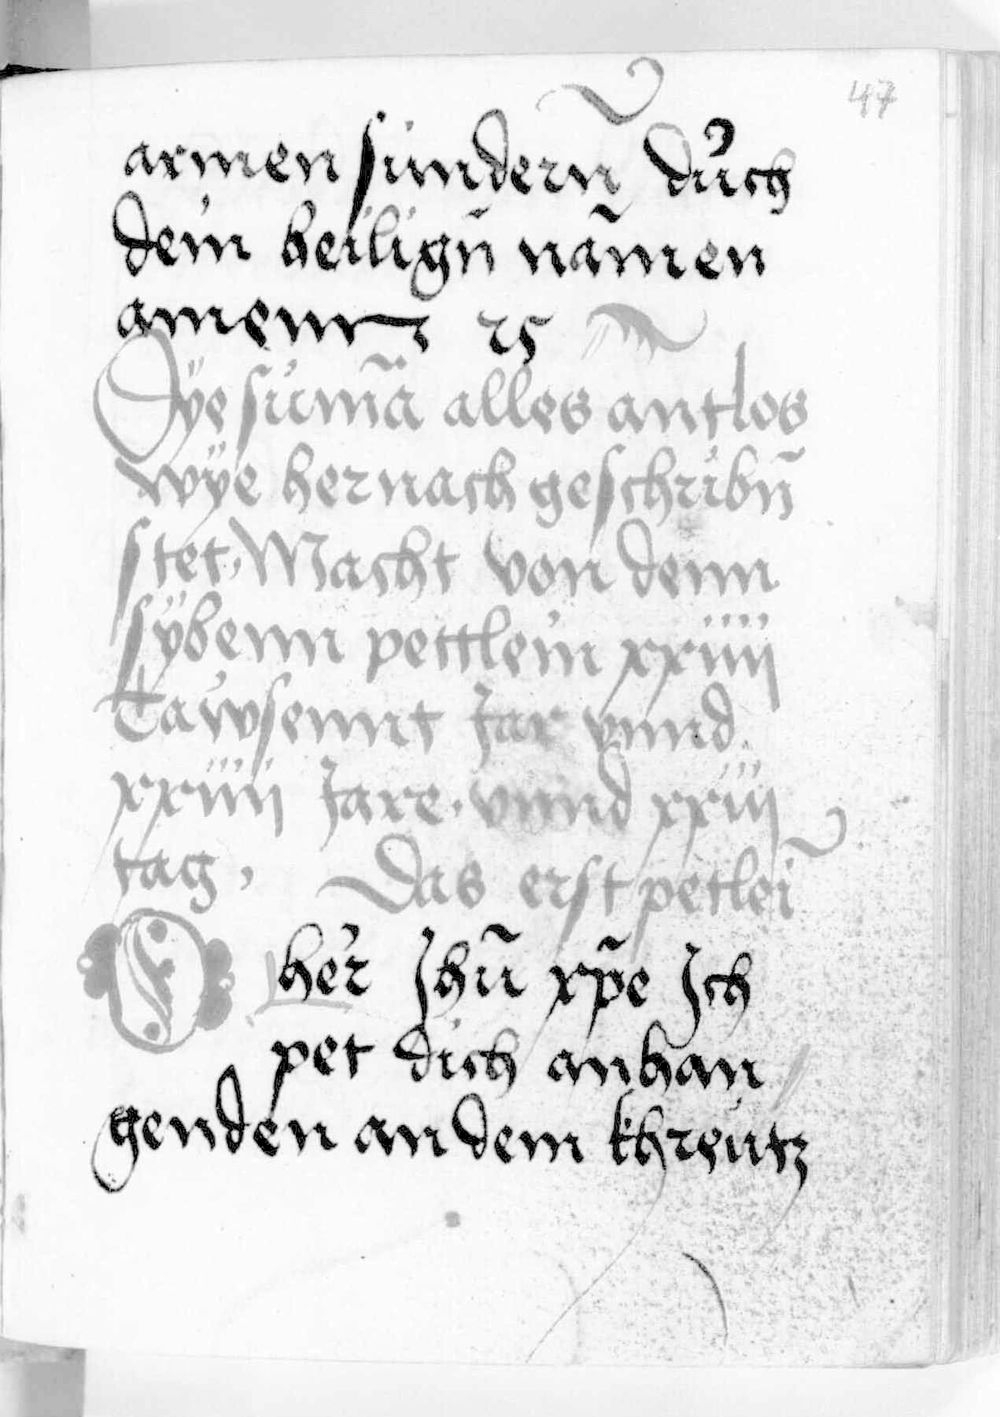 47
armen sündern̄ důrch
dein heilign̄ nam̄en
amenn
Dÿe sum̄a alles antlos
wÿe hernach geschribn̄
stet, Macht von denn
sÿbenn pettlein xxiiii
Tawsennt Jar vnnd
xxiiii Jare. vnnd xxiii
tag, Das erst petlein̄
O her Jhū xp̄e Jch
pet dich anhan
genden an dem khreutz